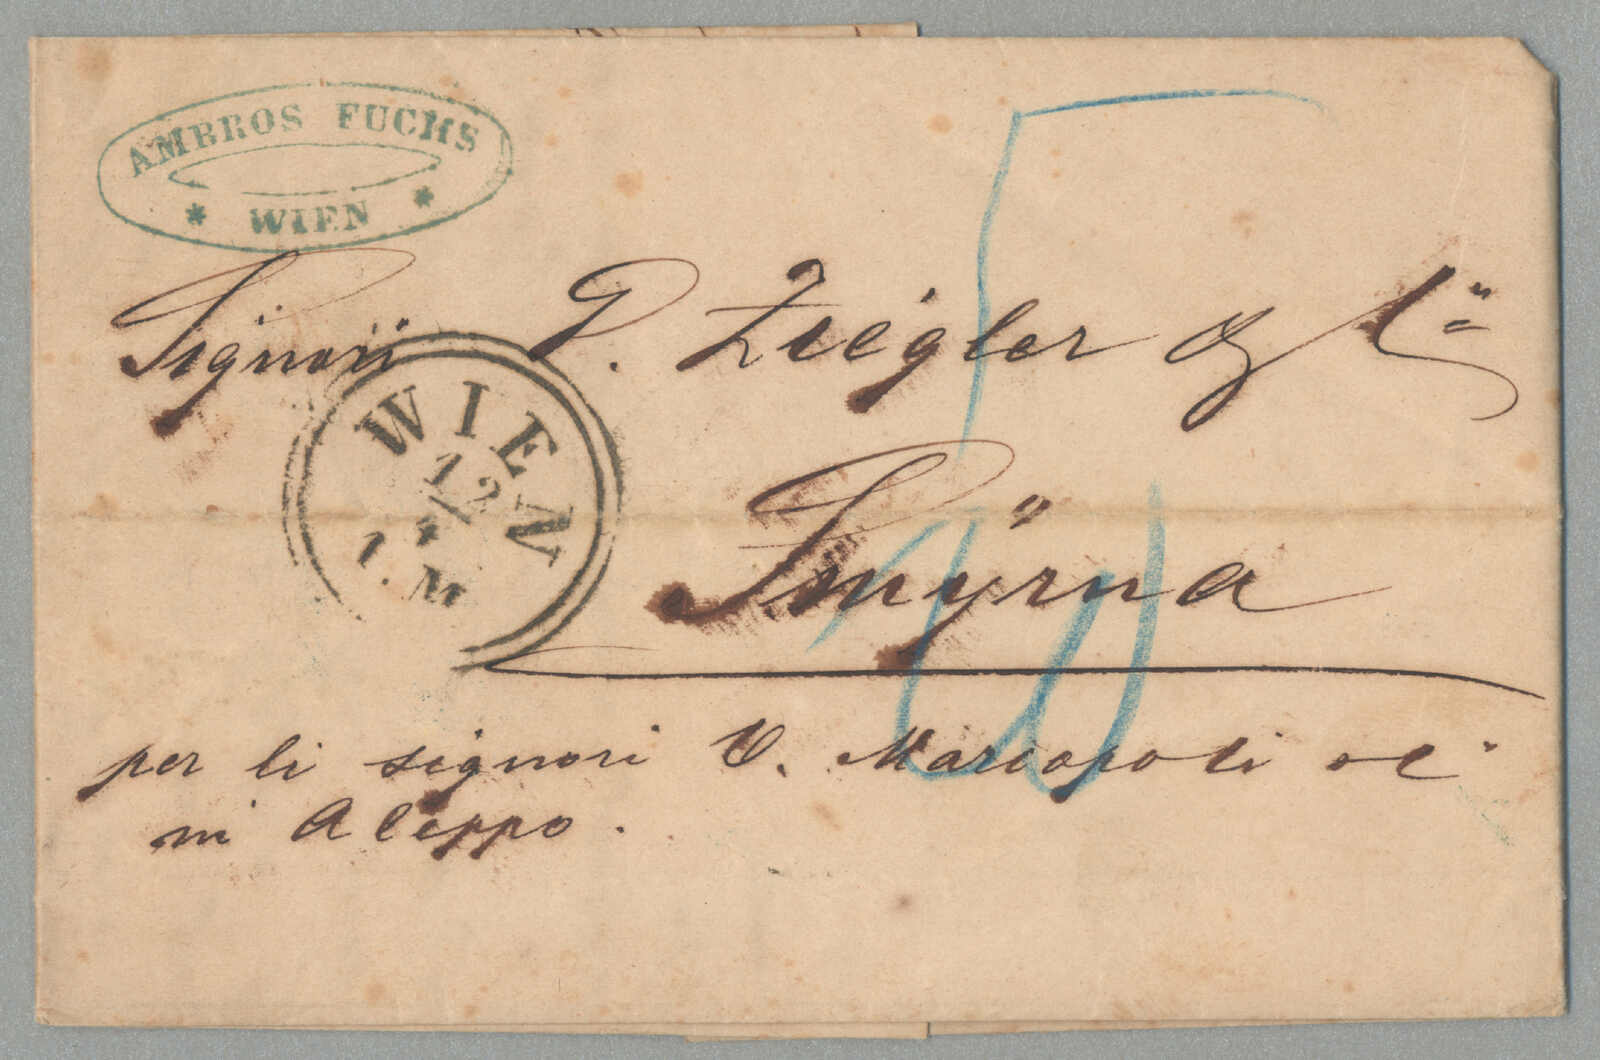 AMBROS FUCHS
* WIEN *
Signori P. Ziegler & Cº
WIEN
12
1. M
Smÿrna
per li signori V. Marcopoli et Cº
in Aleppo.
10